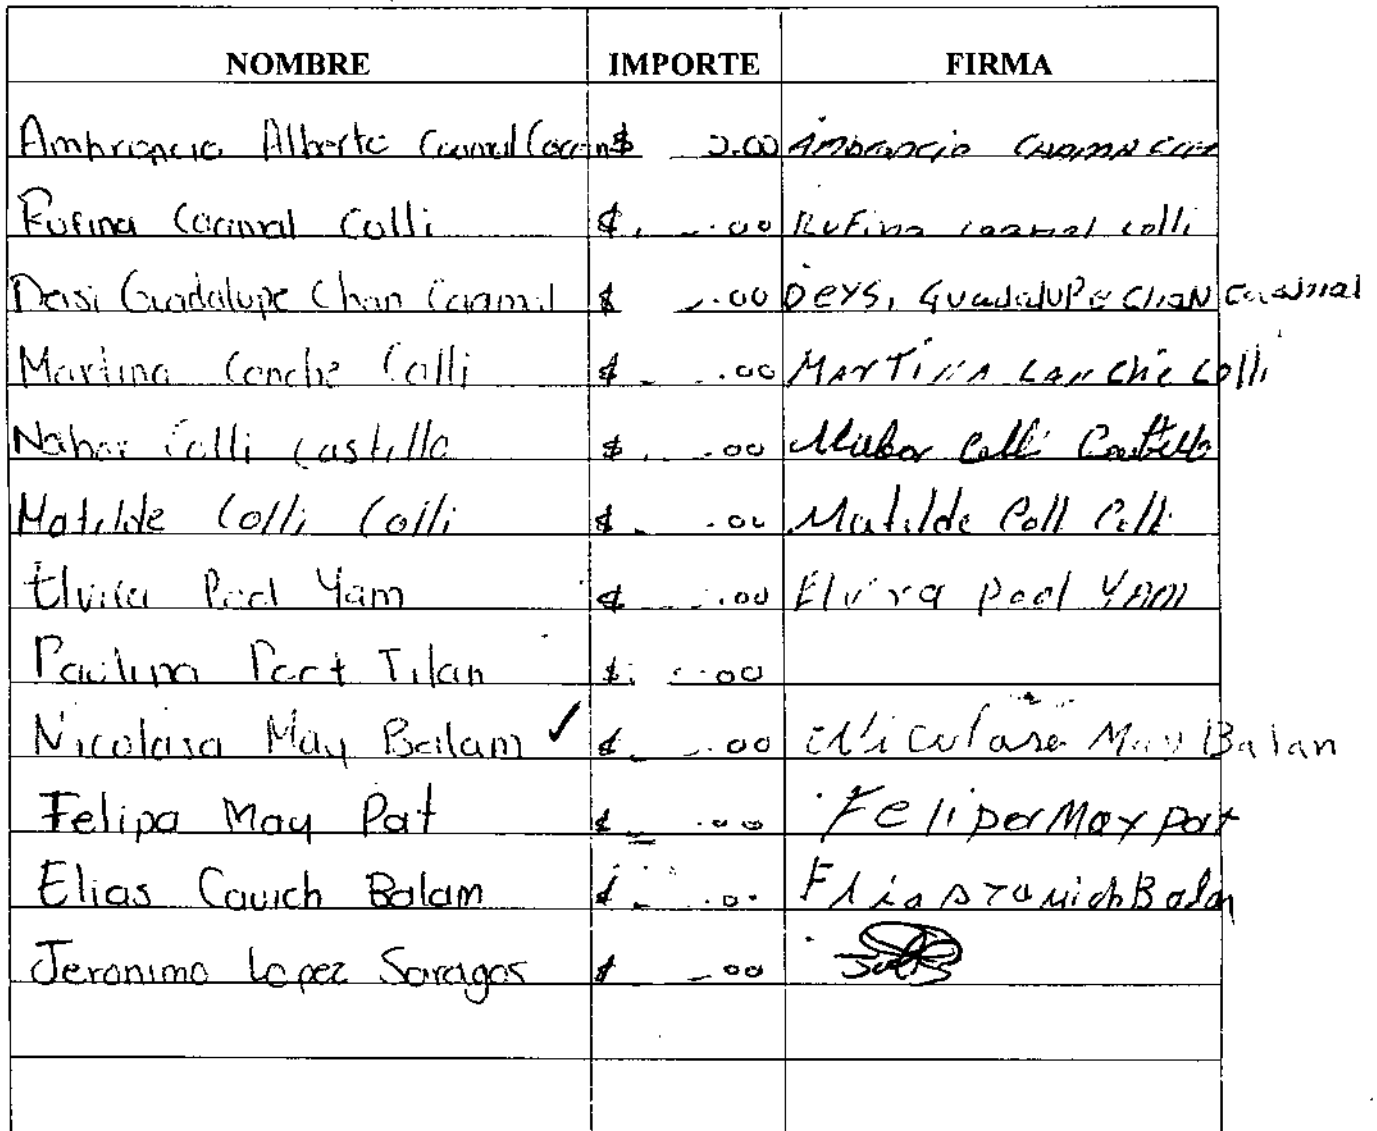 NOMBRE IMPORTE FIRMA
Alberto Caamal $ .00
Rufina Caamal Colli $ .00 Rufina caamal colli
Deisi Guadalupe Chan Caamal $ .00 DEYSI GuadaluPe CHAN caamal
Martina Canche Colli $ .00 MARTINA CANChé Colli
Nabor Colli Castillo $ .00 Nabor Colli Castillo
Matilde Colli Colli $ .00 Matilde Coll Colli
Elvira Pool Yam $ .00 Elvira pool YAM
Paulina $ .00
Nicolasa May Balam ✓ $ .00 Nicolasa May Balan
Felipa May Pat $ .00 Felipa May pat
Elias Cauich Balam $ .00 Elias Cauich Balam
Jeronimo Lopez $ .00